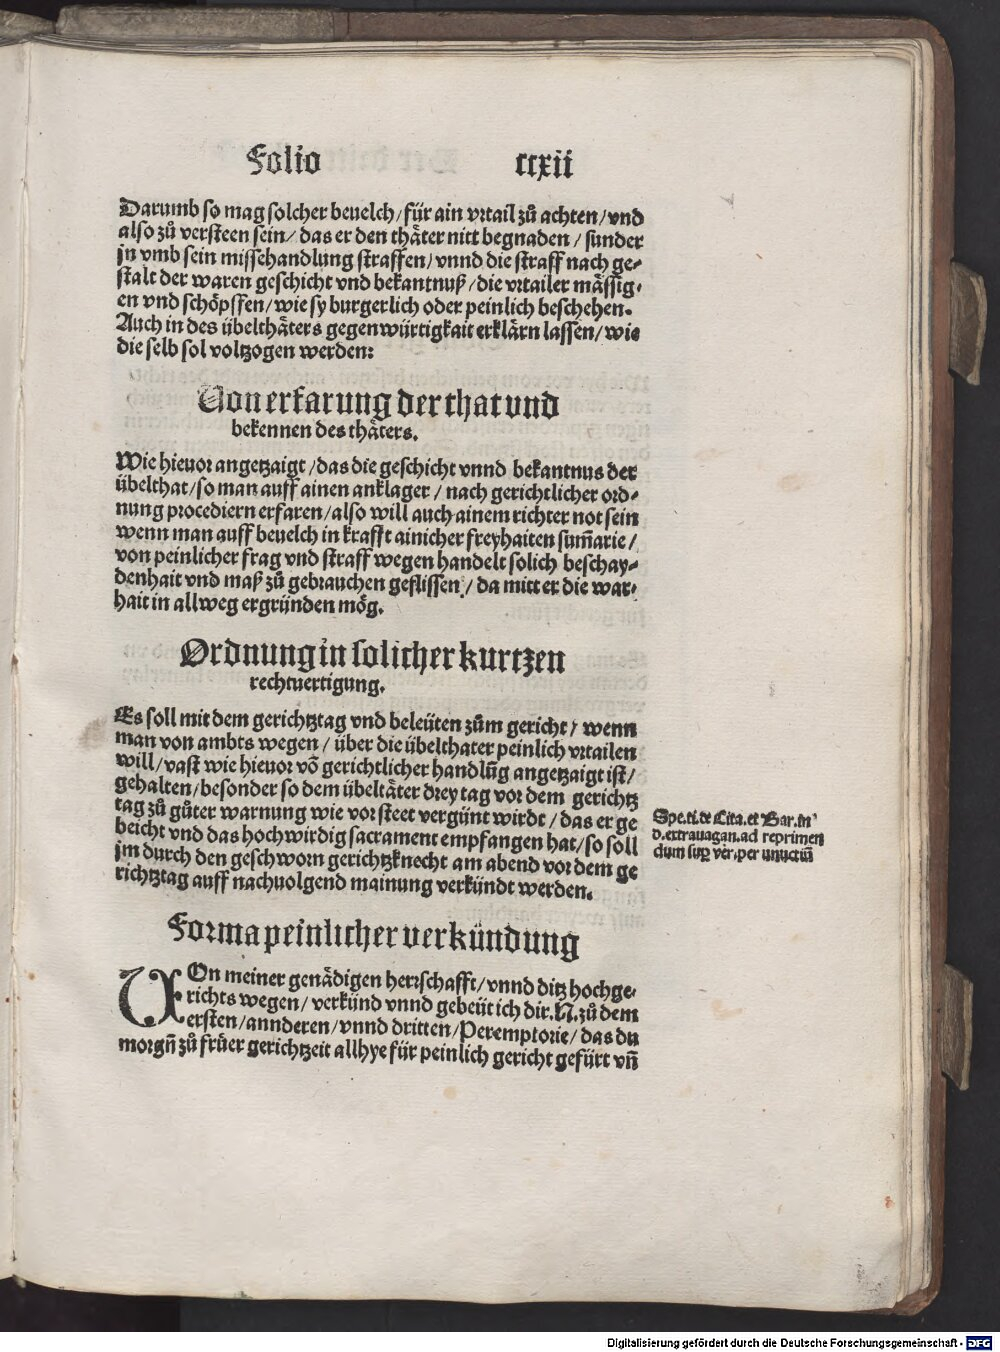 Folio ccxii
Darumb so mag solcher beuelch/für ain vrtail zů achten/vnd
also zů versteen sein/das er den thäter nitt begnaden/sunder
jn vmb sein missehandlung straffen/vnnd die straff nach ge-
stalt der waren geschicht vnd bekantnuß/die vrtailer mässig-
en vnd schöpffen/wie sy burgerlich oder peinlich beschehen.
Auch in des übelthäters gegenwürtigkait erklärn lassen/wie
die selb sol voltzogen werden:
Von erfarung der that vnd
bekennen des thäters.
Wie hieuor angetzaigt/das die geschicht vnnd bekantnus der
übelthat/so man auff ainen anklager/nach gerichtlicher ord-
nung procediern erfaren/also will auch ainem richter not sein
wenn man auff beuelch in krafft ainicher freyhaiten sum̄arie/
von peinlicher frag vnd straff wegen handelt solich beschay-
denhait vnd maß zů gebrauchen geflissen/da mitt er die war-
hait in allweg ergründen mög.
Ordnung in solicher kurtzen
rechtuertigung.
Es soll mit dem gerichtztag vnd beleüten zům gericht/wenn
man von ambts wegen/über die übelthater peinlich vrtailen
will/vast wie hieuor vō gerichtlicher handlūg angetzaigt ist/
gehalten/besonder so dem übeltäter drey tag vor dem gerichtz
tag zů gůter warnung wie vor steet vergünt wirdt/das er ge
beicht vnd das hochwirdig sacrament empfangen hat/so soll
jm durch den geschworn gerichtzknecht am abend vor dem ge
richtztag auff nachuolgend mainung verkündt werden.
Spe.ti.de Cita.et Bar.in
d.extrauagan.ad reprimen
dum sup ver.per
Forma peinlicher verkündung
VOn meiner genädigen herrschafft/vnnd ditz hochge-
richts wegen/verkünd vnnd gebeüt ich dir.N.zů dem
ersten/annderen/vnnd dritten/Peremptorie/das du
morgn̄ zů frůer gerichtzeit allhye für peinlich gericht gefürt vn̄
Digitalisierung gefördert durch die Deutsche Forschungsgemeinschaft - DFG